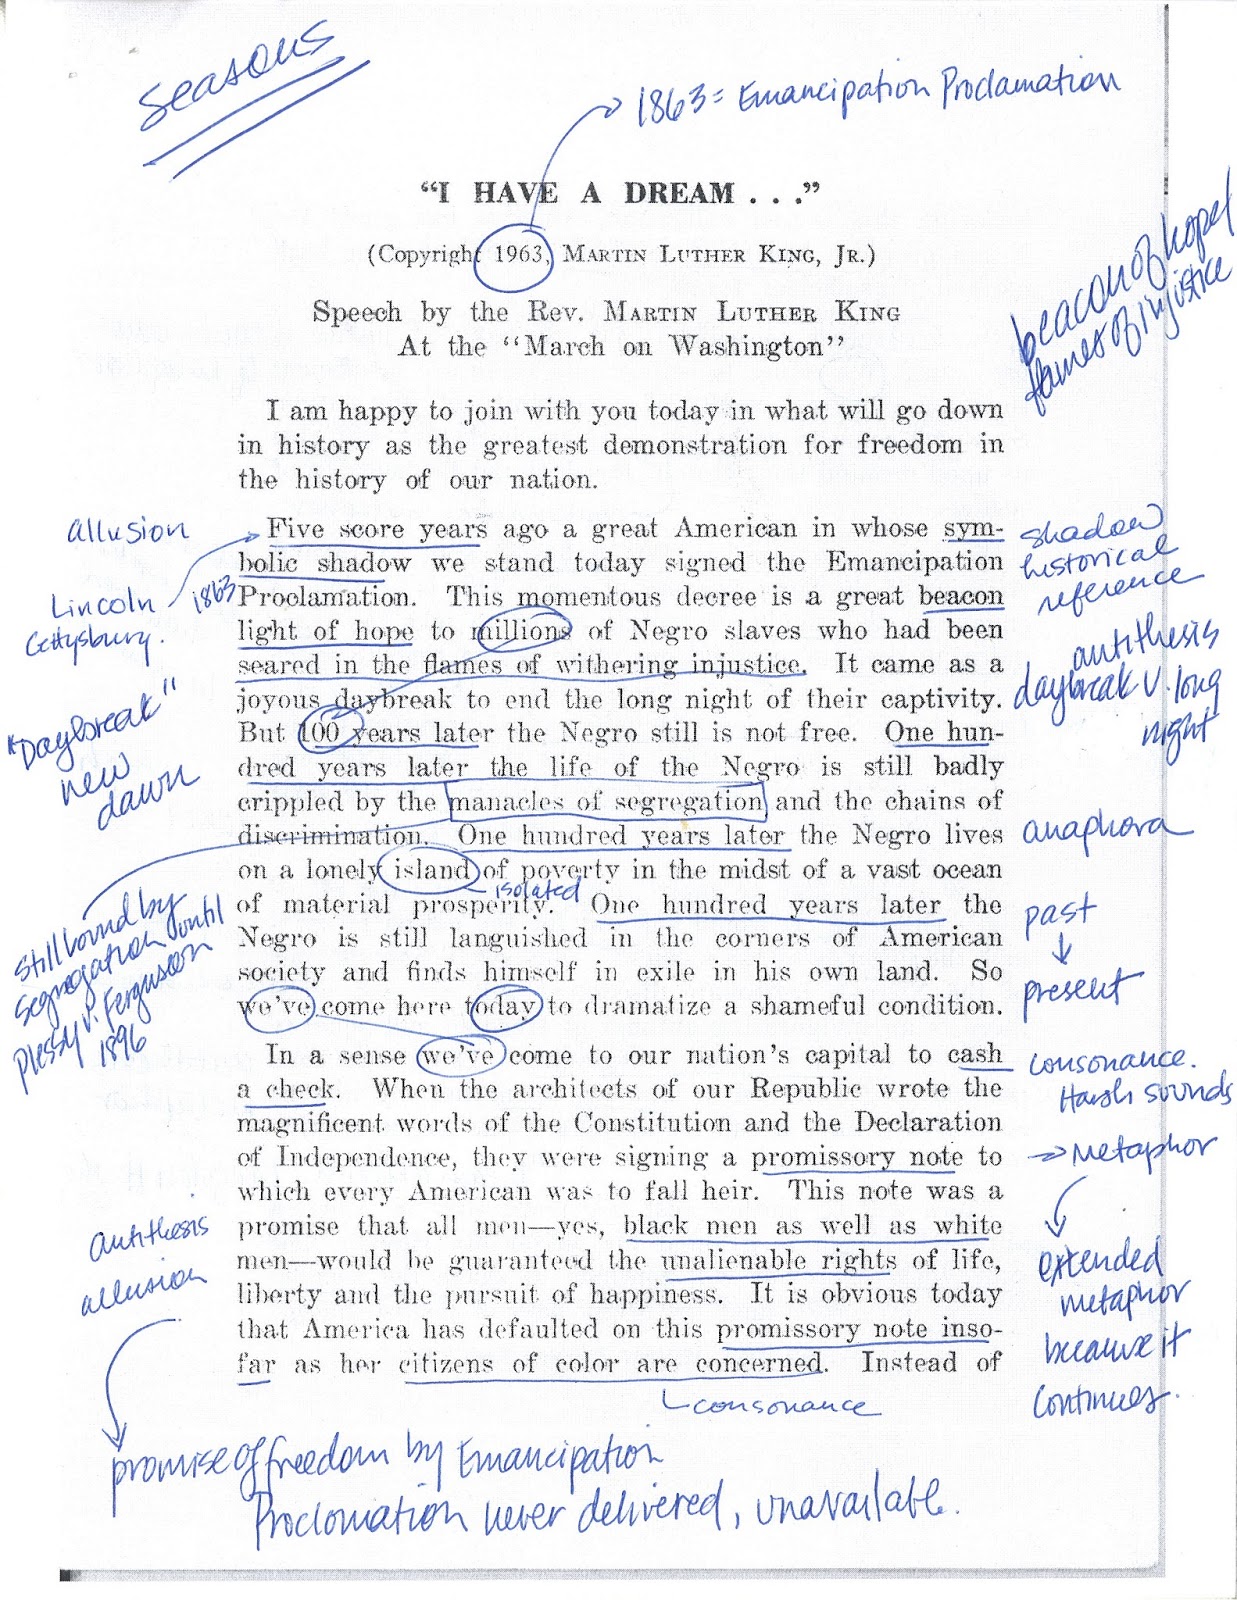 seasons
1863 = Emancipation Proclamation
"I HAVE A DREAM . . ."
(Copyright 1963, MARTIN LUTHER KING, JR.)
Speech by the Rev. MARTIN LUTHER KING
At the "March on Washington"
beacon of hope
flames of injustice
I am happy to join with you today in what will go down
in history as the greatest demonstration for freedom in
the history of our nation.
allusion
Lincoln
Gettysburg.
1863
"Daybreak"
new
dawn
Five score years ago a great American in whose sym-
bolic shadow we stand today signed the Emancipation
Proclamation. This momentous decree is a great beacon
light of hope to millions of Negro slaves who had been
seared in the flames of withering injustice. It came as a
joyous daybreak to end the long night of their captivity.
But 100 years later the Negro still is not free. One hun-
dred years later the life of the Negro is still badly
crippled by the manacles of segregation and the chains of
discrimination. One hundred years later the Negro lives
on a lonely island of poverty in the midst of a vast ocean
isolated
of material prosperity. One hundred years later the
Negro is still languished in the corners of American
society and finds himself in exile in his own land. So
we've come here today to dramatize a shameful condition.
shadow
historical
reference
antithesis
daybreak v. long
night
anaphora
past
present
Still bound by
segregation until
Plessy v. Ferguson
1896
In a sense we've come to our nation's capital to cash
a check. When the architects of our Republic wrote the
magnificent words of the Constitution and the Declaration
of Independence, they were signing a promissory note to
which every American was to fall heir. This note was a
promise that all men—yes, black men as well as white
men—would be guaranteed the unalienable rights of life,
liberty and the pursuit of happiness. It is obvious today
that America has defaulted on this promissory note inso-
far as her citizens of color are concerned. Instead of
consonance.
Harsh sounds
Metaphor
extended
metaphor
because it
continues.
antithesis
allusion
consonance
promise of freedom by Emancipation
Proclomation never delivered, unavailable.